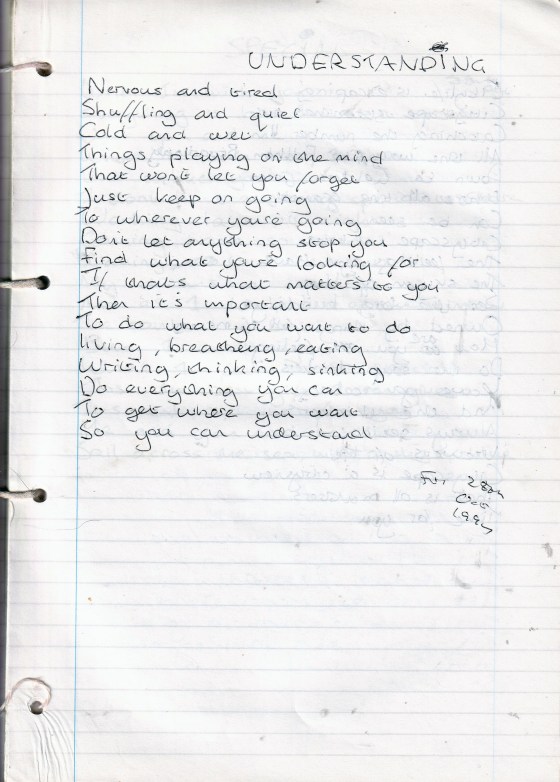 UNDERSTANDING
Nervous and tired
Shuffling and quiet
Cold and wet
Things playing on the mind
That won't let you forget
Just keep on going
To wherever you're going
Don't let anything stop you
Find what you're looking for
If that's what matters to you
Then it's important
To do what you want to do
living, breathing, eating
Writing, thinking, sinking
Do everything you can
To get where you want
So you can understand
Fri, 28th